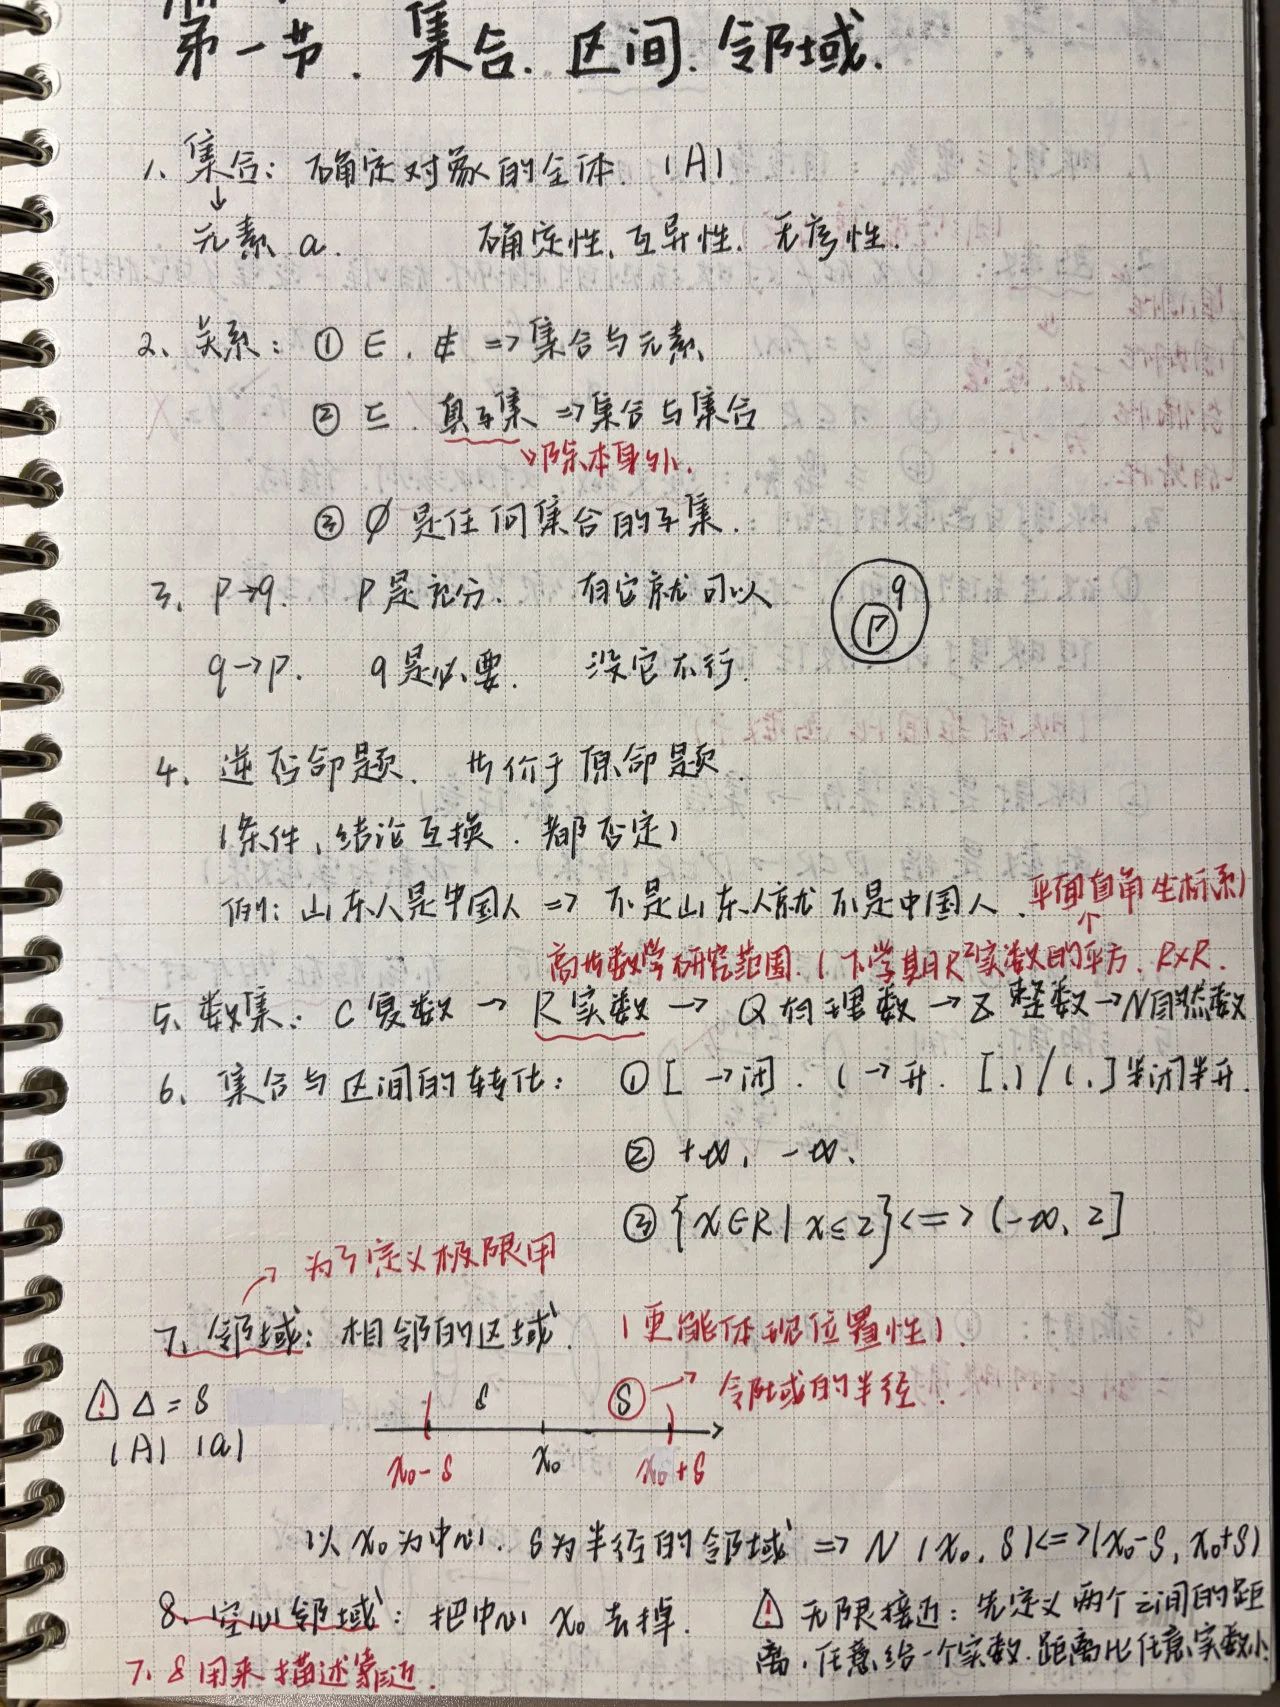 第一节. 集合. 区间. 邻域.
1、集合: 确定对象的全体. (A)
↓
元素 a. 确定性. 互异性. 无序性.
2、关系: ① ∈. ∉ => 集合与元素
② ⊆. 真子集 => 集合与集合
↘除本身外.
③ ∅ 是任何集合的子集.
3、P→q. P是充分. 有它就可以
q P
q→P. q是必要. 没它不行.
4、逆否命题. 等价于原命题.
(条件、结论互换. 都否定)
例: 山东人是中国人 => 不是山东人就不是中国人.
平面直角坐标系)
↑
高等数学研究范围. (下学期R²实数的平方. R×R.
5、数集: C复数 → R实数 → Q有理数 → Z 整数 → N自然数
6、集合与区间的转化: ① [ →闭. ( →开. [,) / (,] 半闭半开.
② +∞, -∞.
③ {x∈R | x≤2} <=> (-∞, 2]
→ 为了定义极限用
7、邻域: 相邻的区域. (更能体现位置性).
⚠ Δ = δ
(A) (a)
δ δ → 邻域的半径.
x₀-δ x₀ x₀+δ
以 x₀ 为中心. δ为半径的邻域 => N (x₀, δ) <=> (x₀-δ, x₀+δ)
8、空心邻域: 把中心 x₀ 去掉.
7. δ 用来描述靠近.
⚠ 无限接近: 先定义两个之间的距
离. 任意给一个实数. 距离比任意实数小.